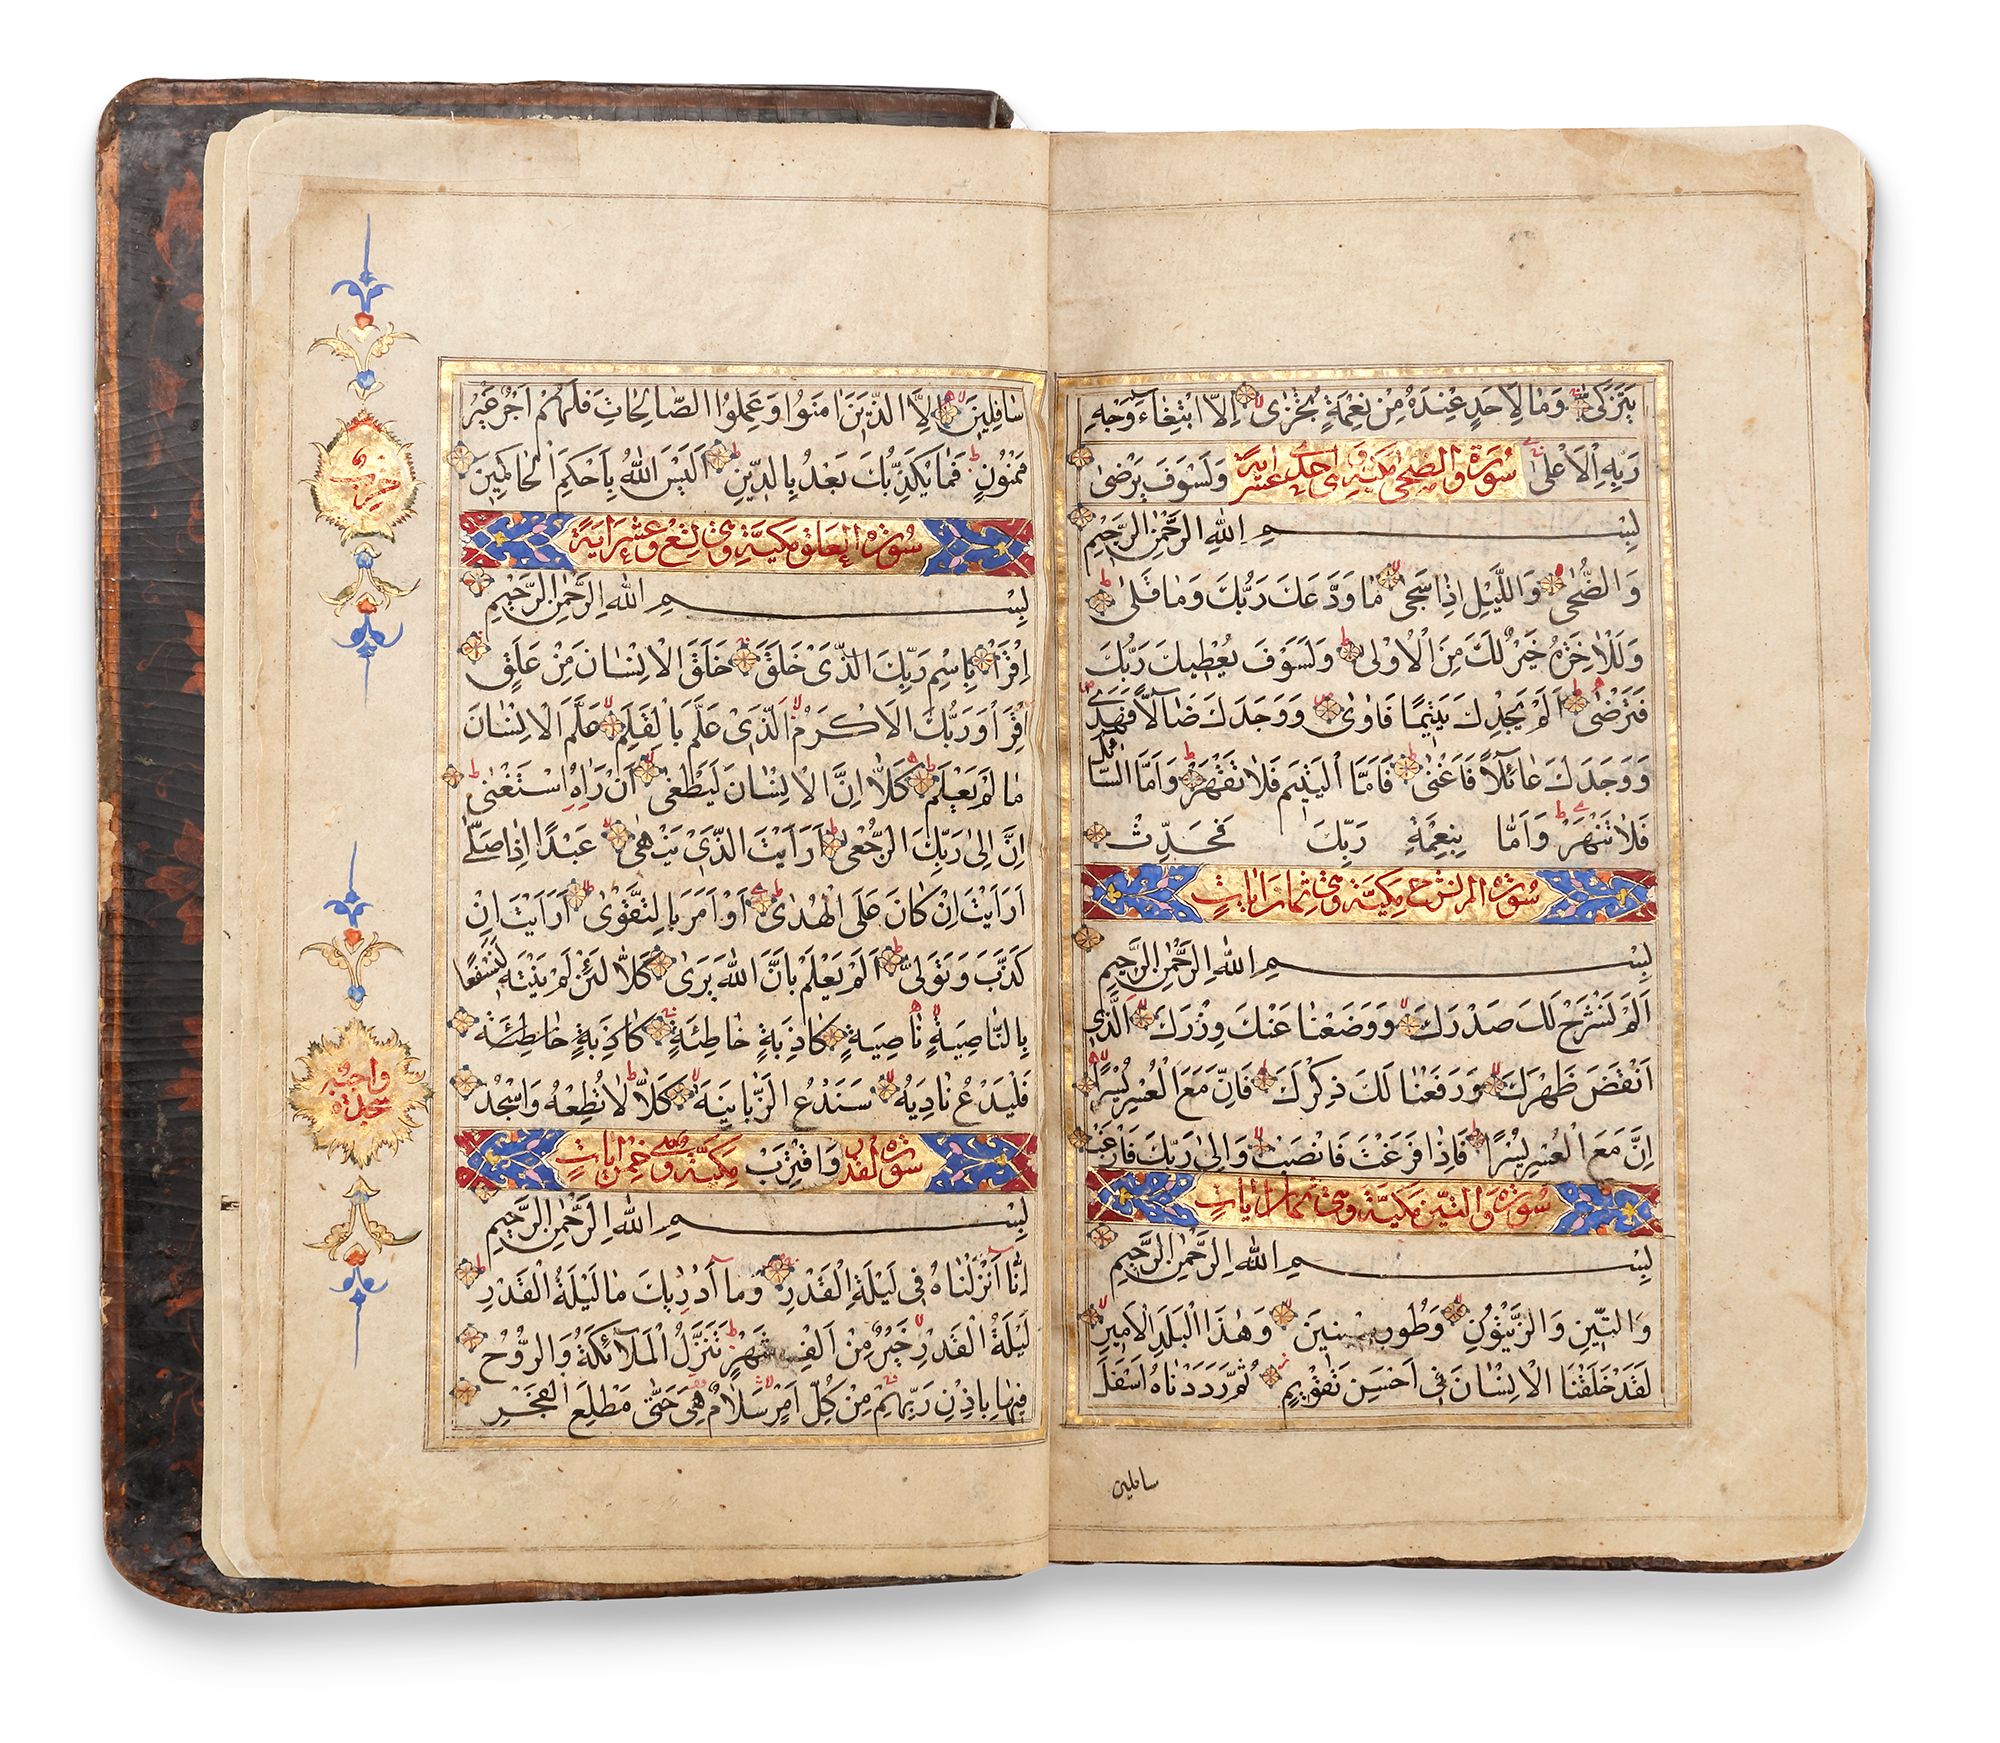 يَتَزَكّٰى وَمَا لِاَحَدٍ عِنْدَهُ مِنْ نِعْمَةٍ تُجْزٰى اِلَّا ابْتِغَاءَ وَجْهِ
رَبِّهِ الْاَعْلٰى سورة والضحى مكية وهى احدى عشر اية وَلَسَوْفَ يَرْضٰى
بِسْمِ اللهِ الرَّحْمٰنِ الرَّحِيمِ
وَالضُّحٰى وَاللَّيْلِ اِذَا سَجٰى مَا وَدَّعَكَ رَبُّكَ وَمَا قَلٰى
وَلَلْاٰخِرَةُ خَيْرٌ لَكَ مِنَ الْاُولٰى وَلَسَوْفَ يُعْطِيكَ رَبُّكَ
فَتَرْضٰى اَلَمْ يَجِدْكَ يَتِيمًا فَاٰوٰى وَوَجَدَكَ ضَالًّا فَهَدٰى
وَوَجَدَكَ عَائِلًا فَاَغْنٰى فَاَمَّا الْيَتِيمَ فَلَا تَقْهَرْ وَاَمَّا السَّائِلَ
فَلَا تَنْهَرْ وَاَمَّا بِنِعْمَةِ رَبِّكَ فَحَدِّثْ
سورة الم نشرح مكية وهى ثمان ايات
بِسْمِ اللهِ الرَّحْمٰنِ الرَّحِيمِ
اَلَمْ نَشْرَحْ لَكَ صَدْرَكَ وَوَضَعْنَا عَنْكَ وِزْرَكَ اَلَّذِى
اَنْقَضَ ظَهْرَكَ وَرَفَعْنَا لَكَ ذِكْرَكَ فَاِنَّ مَعَ الْعُسْرِ يُسْرًا
اِنَّ مَعَ الْعُسْرِ يُسْرًا فَاِذَا فَرَغْتَ فَانْصَبْ وَاِلٰى رَبِّكَ فَارْغَبْ
سورة والتين مكية وهى ثمان ايات
بِسْمِ اللهِ الرَّحْمٰنِ الرَّحِيمِ
وَالتِّينِ وَالزَّيْتُونِ وَطُورِ سِينِينَ وَهٰذَا الْبَلَدِ الْاَمِينِ
لَقَدْ خَلَقْنَا الْاِنْسَانَ فِى اَحْسَنِ تَقْوِيمٍ ثُمَّ رَدَدْنَاهُ اَسْفَلَ
سافلين
سَافِلِينَ اِلَّا الَّذِينَ اٰمَنُوا وَعَمِلُوا الصَّالِحَاتِ فَلَهُمْ اَجْرٌ غَيْرُ
مَمْنُونٍ فَمَا يُكَذِّبُكَ بَعْدُ بِالدِّينِ اَلَيْسَ اللهُ بِاَحْكَمِ الْحَاكِمِينَ
سورة العلق مكية وهى تسع وعشر اية
بِسْمِ اللهِ الرَّحْمٰنِ الرَّحِيمِ
اِقْرَاْ بِاسْمِ رَبِّكَ الَّذِى خَلَقَ خَلَقَ الْاِنْسَانَ مِنْ عَلَقٍ
اِقْرَاْ وَرَبُّكَ الْاَكْرَمُ اَلَّذِى عَلَّمَ بِالْقَلَمِ عَلَّمَ الْاِنْسَانَ
مَا لَمْ يَعْلَمْ كَلَّا اِنَّ الْاِنْسَانَ لَيَطْغٰى اَنْ رَاٰهُ اسْتَغْنٰى
اِنَّ اِلٰى رَبِّكَ الرُّجْعٰى اَرَاَيْتَ الَّذِى يَنْهٰى عَبْدًا اِذَا صَلّٰى
اَرَاَيْتَ اِنْ كَانَ عَلَى الْهُدٰى اَوْ اَمَرَ بِالتَّقْوٰى اَرَاَيْتَ اِنْ
كَذَّبَ وَتَوَلّٰى اَلَمْ يَعْلَمْ بِاَنَّ اللهَ يَرٰى كَلَّا لَئِنْ لَمْ يَنْتَهِ لَنَسْفَعًا
بِالنَّاصِيَةِ نَاصِيَةٍ كَاذِبَةٍ خَاطِئَةٍ كَاذِبَةٍ خَاطِئَةٍ
فَلْيَدْعُ نَادِيَهُ سَنَدْعُ الزَّبَانِيَةَ كَلَّا لَا تُطِعْهُ وَاسْجُدْ
سورة القدر وَاقْتَرِبْ مكية وهى خمس ايات
بِسْمِ اللهِ الرَّحْمٰنِ الرَّحِيمِ
اِنَّا اَنْزَلْنَاهُ فِى لَيْلَةِ الْقَدْرِ وَمَا اَدْرٰيكَ مَا لَيْلَةُ الْقَدْرِ
لَيْلَةُ الْقَدْرِ خَيْرٌ مِنْ اَلْفِ شَهْرٍ تَنَزَّلُ الْمَلَائِكَةُ وَالرُّوحُ
فِيهَا بِاِذْنِ رَبِّهِمْ مِنْ كُلِّ اَمْرٍ سَلَامٌ هِىَ حَتّٰى مَطْلَعِ الْفَجْرِ
حزب
واجبة
سجدة